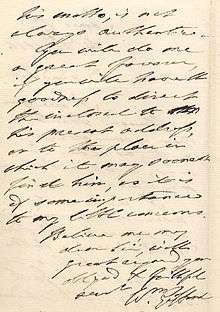 his motto, is not
always authentic.—
You will do me
a great favour,
if you will have the
goodness to direct
the inclosed to
his present address,
or to the place in
which it may soonest
find him, as it is
of some importance
to my little concerns.
Believe me my
dear Sir with
great regard your
obed & faithful
Servt
Wm Gifford